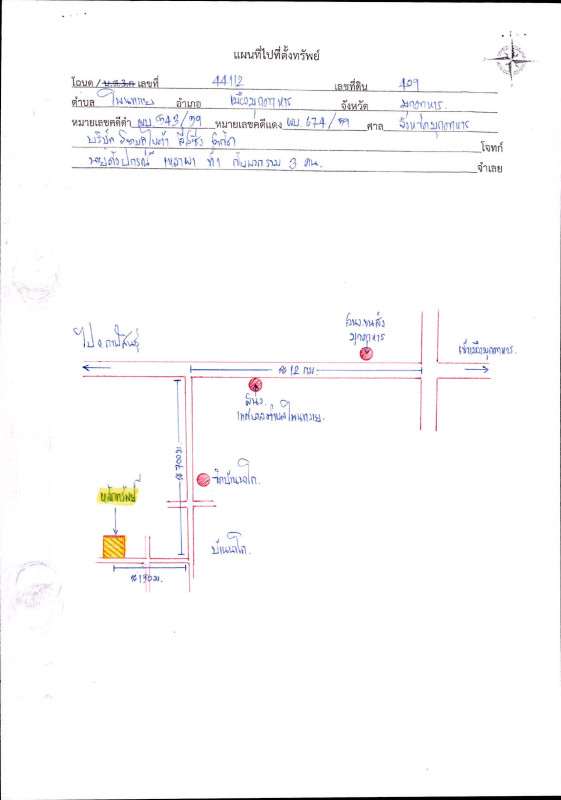 แผนที่ไปที่ตั้งทรัพย์
โฉนด / น.ส.3.ก เลขที่ 44112 เลขที่ดิน 409
ตำบล โพนทราย อำเภอ เมืองมุกดาหาร จังหวัด มุกดาหาร
หมายเลขคดีดำ ผบ 543/59 หมายเลขคดีแดง ผบ 674/59 ศาล จังหวัดมุกดาหาร
บริษัท ลีสซิ่ง จำกัด โจทก์
ที่ 1 กับพวกรวม 3 คน. จำเลย
ไป จ.กาฬสินธุ์
สนง.ขนส่ง
มุกดาหาร
เข้าเมืองมุกดาหาร.
≈ 12 กม.
สนง.
เทศบาลตำบลโพนทราย.
≈ 700 ม.
วัดบ้านนาโก.
หลักทรัพย์
บ้านนาโก.
≈ 190 ม.